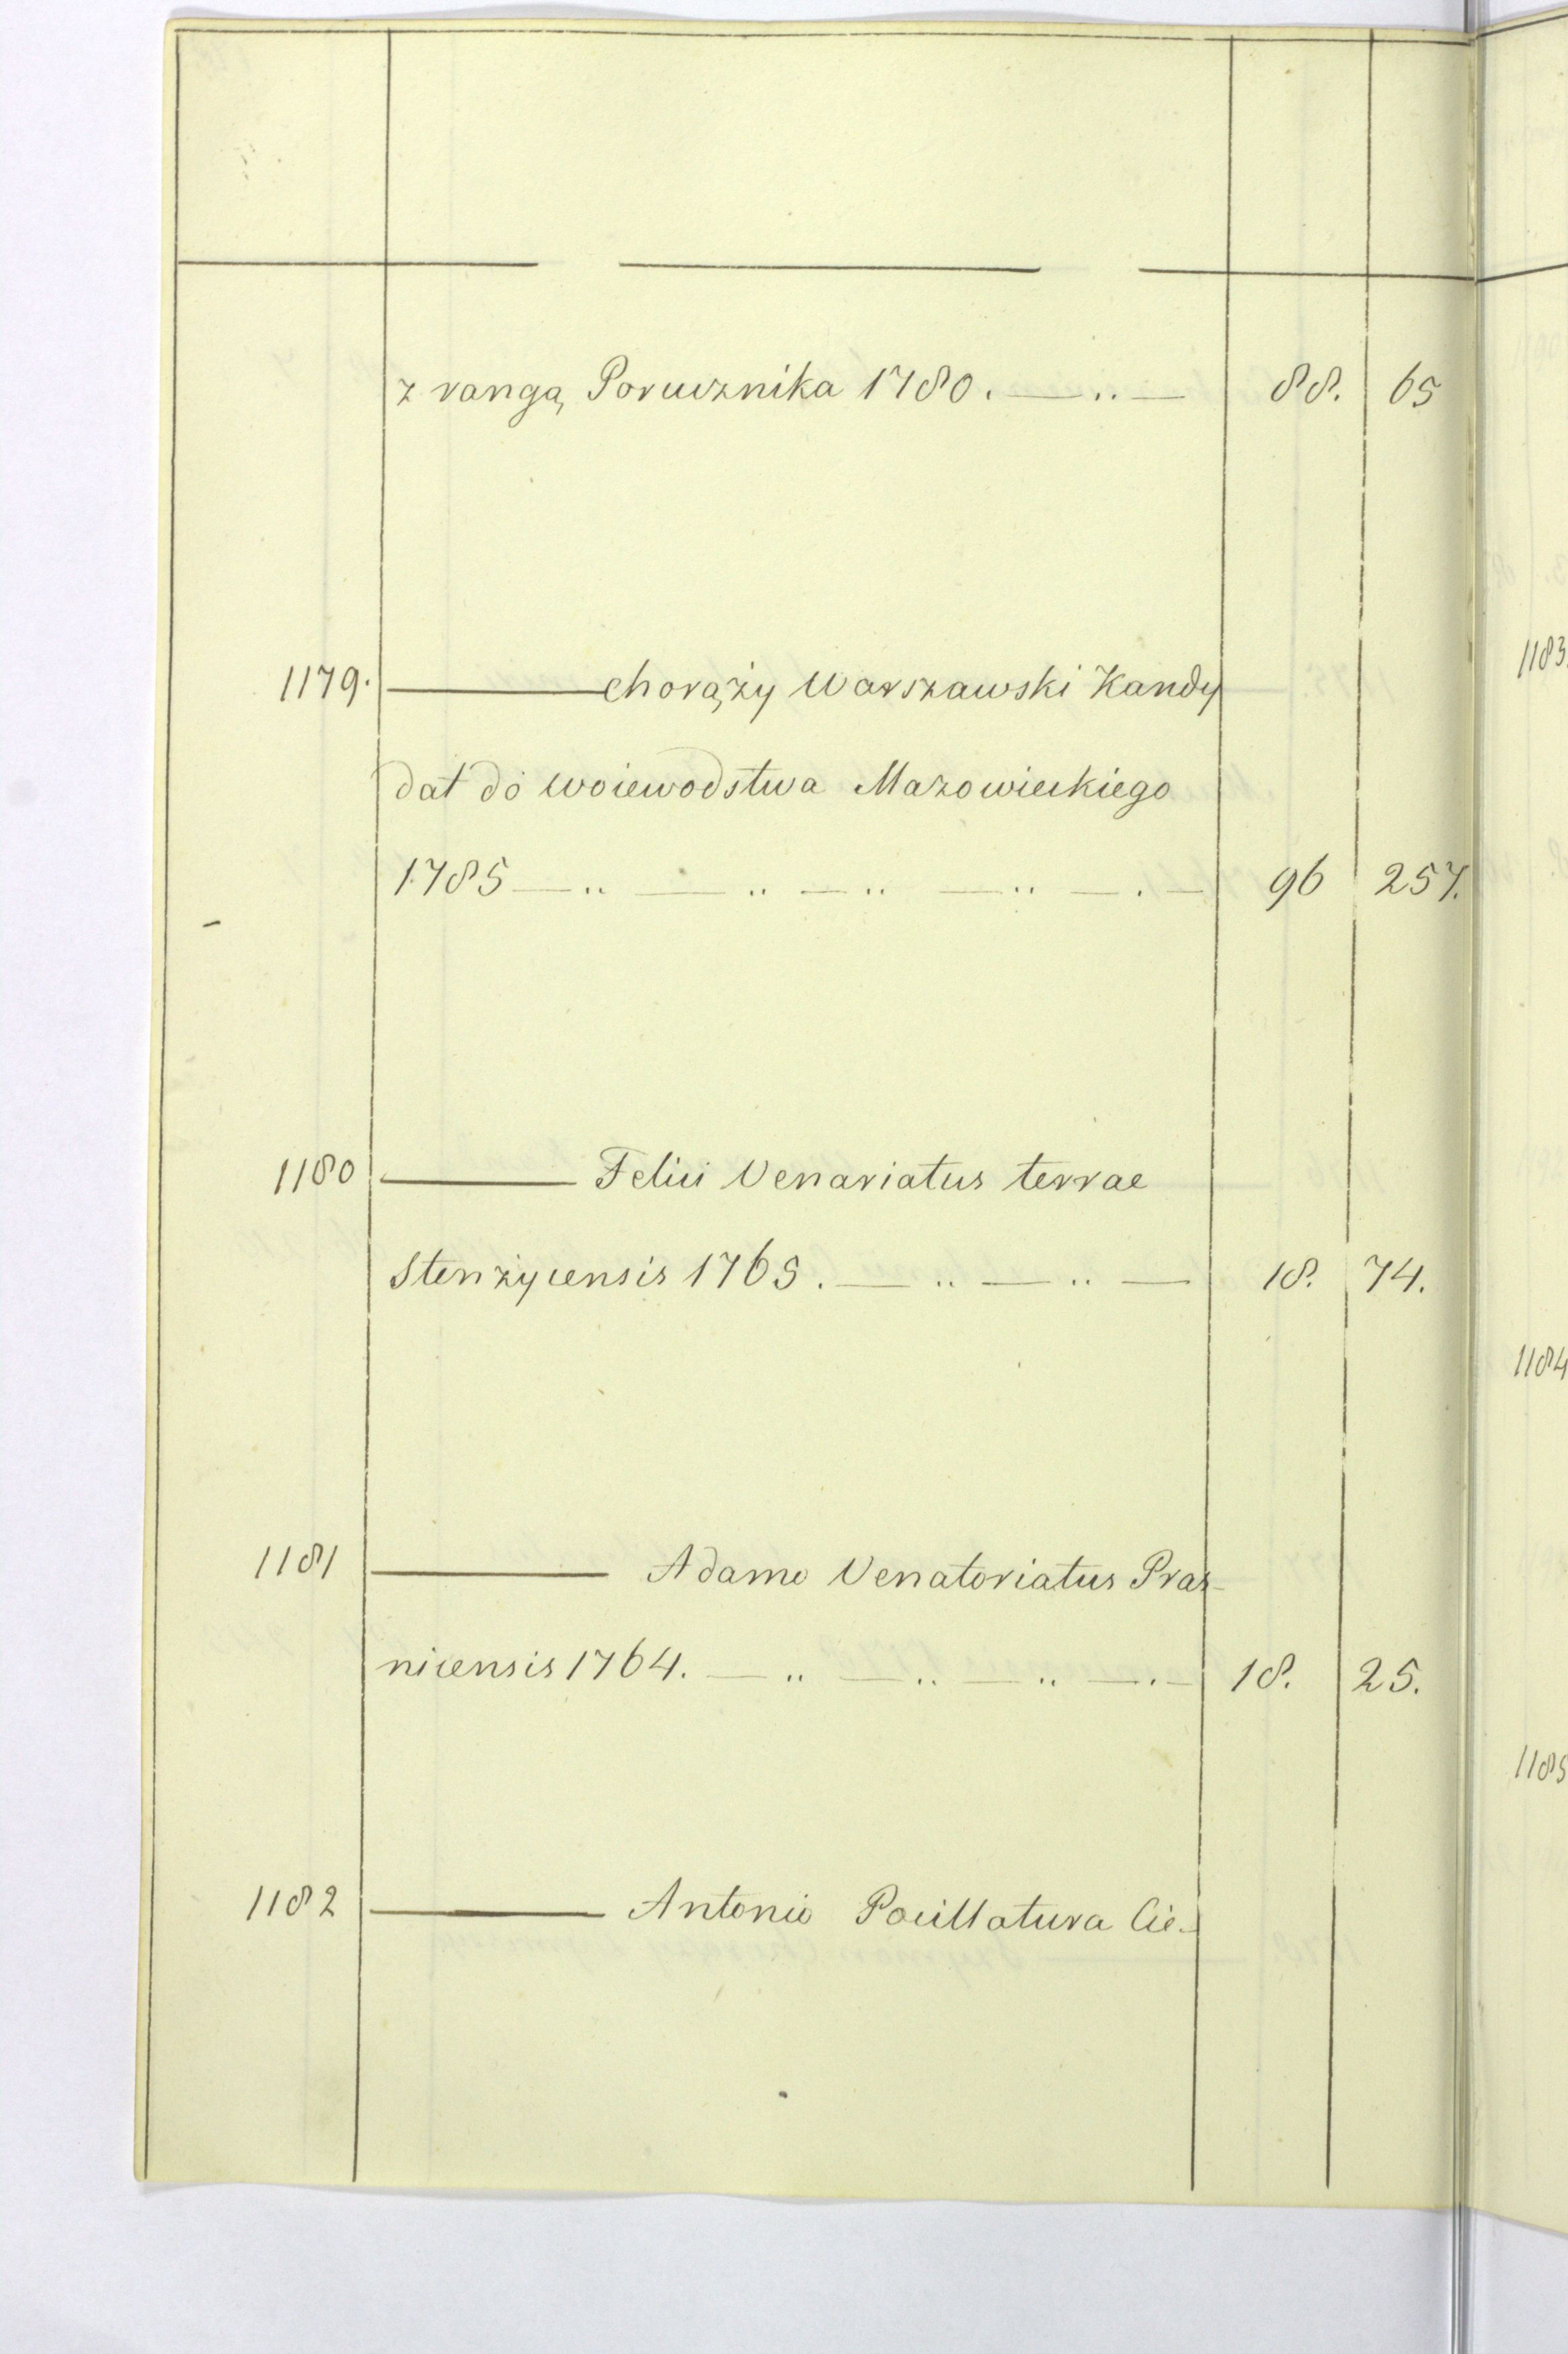 z rangą Porucznika 1780. — .. — 88. 65
1179. — Chorąży Warszawski Kandy
dat do woiewodstwa Mazowieckiego
1785 — .. — .. — .. — .. — . — 96 257.
1180 — Felici Venariatus terrae
Stenzycensis 1765. — .. — .. — 18. 74.
1181 — Adamo Venatoriatus Pras-
nicensis 1764. — .. — .. — .. — . — 18. 25.
1182 — Antonio Pocillatura Cie-
1183.
1184
1185